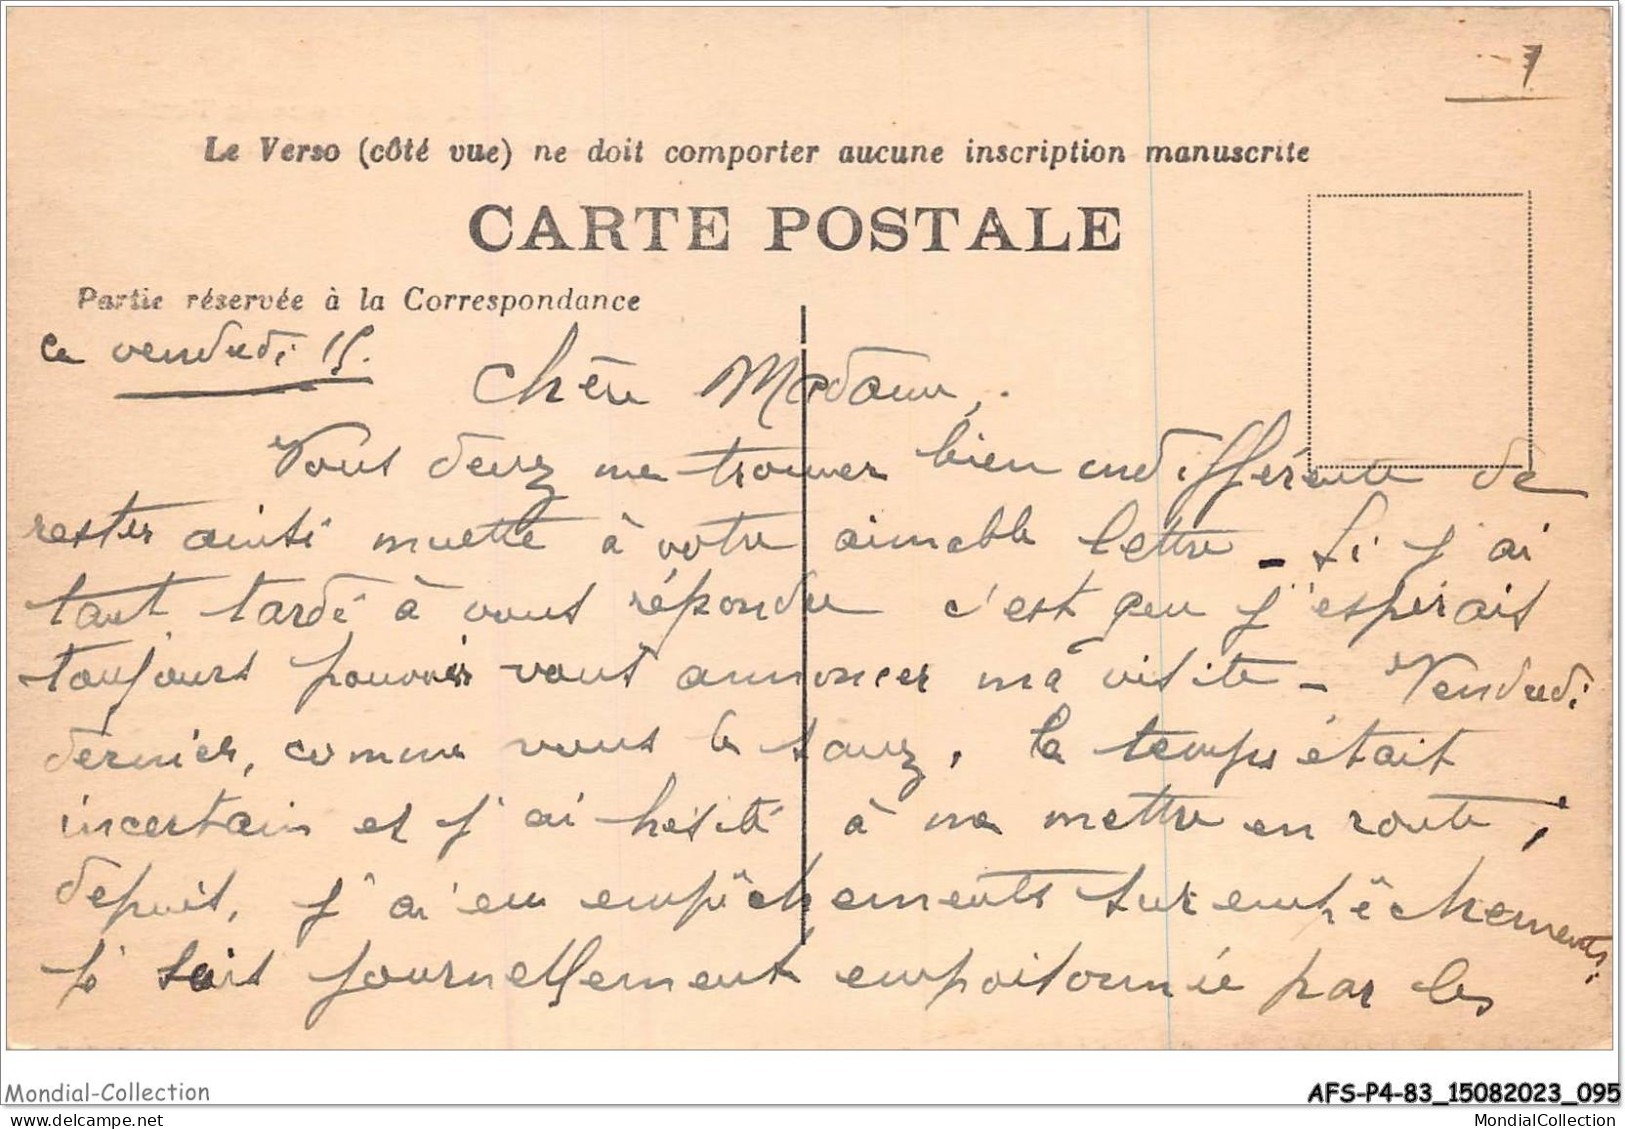 7
Le Verso (côté vue) ne doit comporter aucune inscription manuscrite
CARTE POSTALE
Partie réservée à la Correspondance
Ce vendredi 15.
Chère Madame,
Vous devez me trouver bien indifférente de
rester ainsi muette à votre aimable lettre - Si j'ai
tant tardé à vous répondre c'est que j'espérais
toujours pouvoir vous annoncer ma visite - Vendredi
dernier, comme vous le savez, le temps était
incertain et j'ai hésité à me mettre en route ;
depuis, j'ai eu empêchements sur empêchements.
je suis journellement empoisonnée par les
Mondial-Collection
AFS-P4-83_15082023_095
MondialCollection
MondialCollection